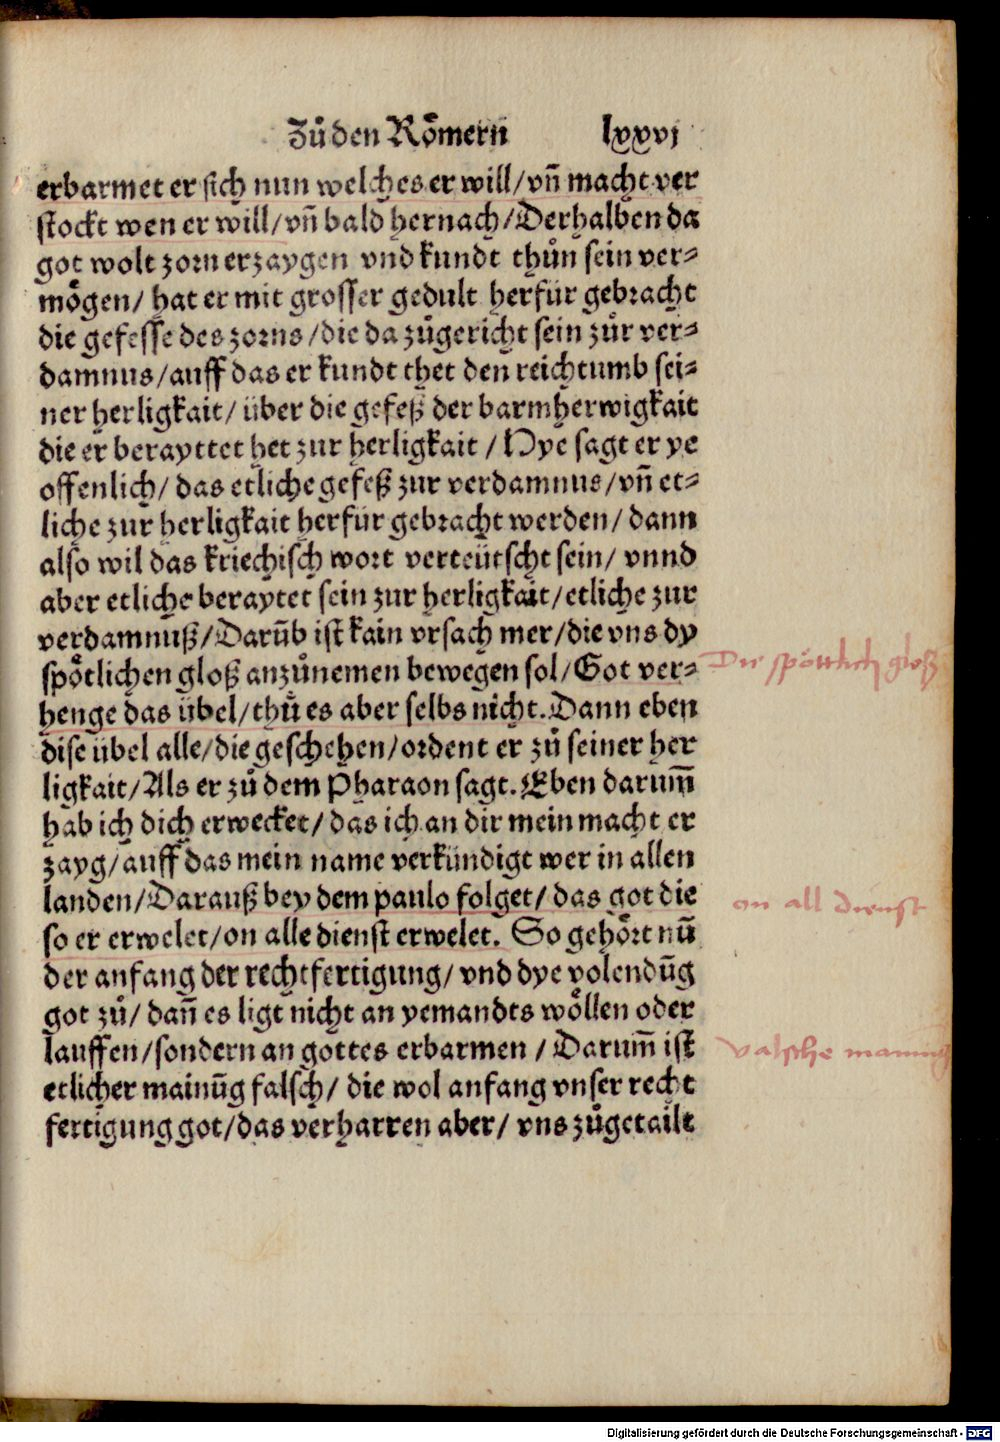 Zů den Rőmern lxxvj
erbarmet er sich nun welches er will/vñ macht ver
stockt wen er will/vñ bald hernach/Derhalben da
got wolt zorn erzaygen vnd kundt thůn sein ver⸗
mögen/ hat er mit grosser gedult herfür gebracht
die gefesse des zorns/die da zůgericht sein zůr ver⸗
damnus/auff das er kundt thet den reichtumb sei⸗
ner herligkait/ über die gefeß der barmherwigkait
die er berayttet het zur herligkait/Hye sagt er ye
offenlich/ das etliche gefeß zur verdamnus/vñ et⸗
liche zur herligkait herfür gebracht werden/ dann
also wil das kriechisch wort verteütscht sein/ vnnd
aber etliche beraytet sein zur herligkait/etliche zur
verdamnuß/Darūb ist kain vrsach mer/die vns dy
spötlichen gloß anzůnemen bewegen sol/Got ver⸗
Die spöttlich gloß
henge das übel/thů es aber selbs nicht.Dann eben
dise übel alle/die geschehen/ordent er zů seiner her
ligkait/Als er zů dem Pharaon sagt.Eben darum̄
hab ich dich erwecket/das ich an dir mein macht er
zayg/auff das mein name verkündigt wer in allen
landen/Darauß bey dem paulo folget/das got die
on all dienst
so er erwelet/on alle dienst erwelet. So gehört nū
der anfang der rechtfertigung/ vnd dye volendūg
got zů/ dañ es ligt nicht an yemandts wöllen oder
lauffen/sondern an gottes erbarmen/Darum̄ ist
valsche mainung
etlicher mainūg falsch/ die wol anfang vnser recht
fertigung got/das verharren aber/ vns zůgetailt
Digitalisierung gefördert durch die Deutsche Forschungsgemeinschaft - DFG